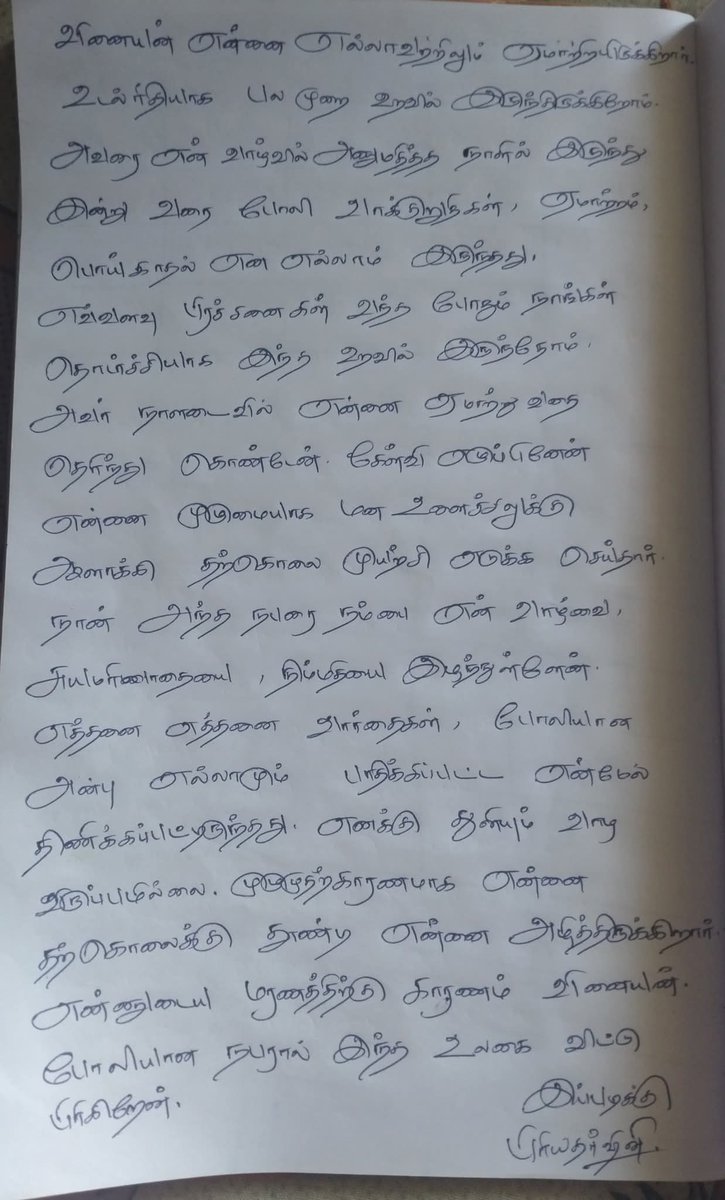 வினையன் என்னை எல்லாவற்றிலும் ஏமாற்றியிருக்கிறார்.
உடல்ரீதியாக பல முறை உறவில் இருந்திருக்கிறோம்.
அவரை என் வாழ்வில் அனுமதித்த நாளில் இருந்து
இன்று வரை போலி வாக்குறுதிகள், ஏமாற்றம்,
பொய் காதல் என எல்லாம் இருந்தது.
எவ்வளவு பிரச்சனைகள் வந்த போதும் நாங்கள்
தொடர்ச்சியாக இந்த உறவில் இருந்தோம்.
அவர் நாளடைவில் என்னை ஏமாற்றுவதை
தெரிந்து கொண்டேன். கேள்வி எழுப்பினேன்
என்னை முழுமையாக மன உளைச்சலுக்கு
ஆளாக்கி தற்கொலை முயற்சி எடுக்க செய்தார்.
நான் அந்த நபரை நம்பை என் வாழ்வை,
சுயமரியாதையை, நிம்மதியை இழந்துள்ளேன்.
எத்தனை எத்தனை வார்தைகள், போலியான
அன்பு எல்லாமும் பாதிக்கப்பட்ட என்மேல்
திணிக்கப்பட்டிருந்தது. எனக்கு துளியும் வாழ
விருப்பமில்லை. முழுமுதற்காரணமாக என்னை
தற்கொலைக்கு தூண்டி என்னை அழித்திருக்கிறார்.
என்னுடைய மரணத்திற்கு காரணம் வினையன்.
போலியான நபரால் இந்த உலகை விட்டு
பிரிகிறேன்.
இப்படிக்கு
பிரியதர்ஷினி.